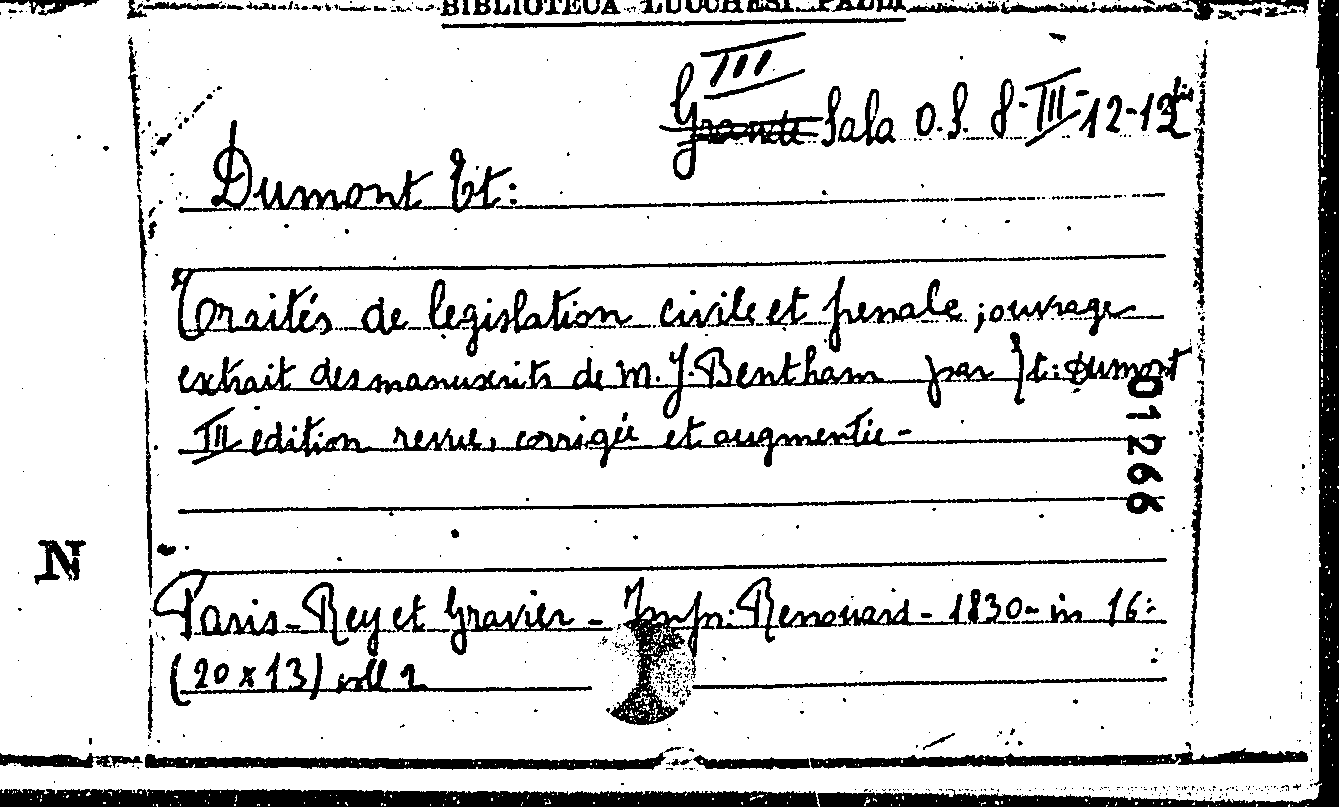 BIBLIOTECA LUCCHESI PALLI
III
Grande Sala O.S. 8-III-12-12bis
Dumont Et:
Traités de legislation civile et penale; ouvrage
extrait des manuscrits de M. J. Bentham par Et: Dumont
III edition revue, corrigée et augmentée-
01266
N
Paris-Rey et Gravier - Imp: Renouard-1830-in 16:
(20x13) voll 2